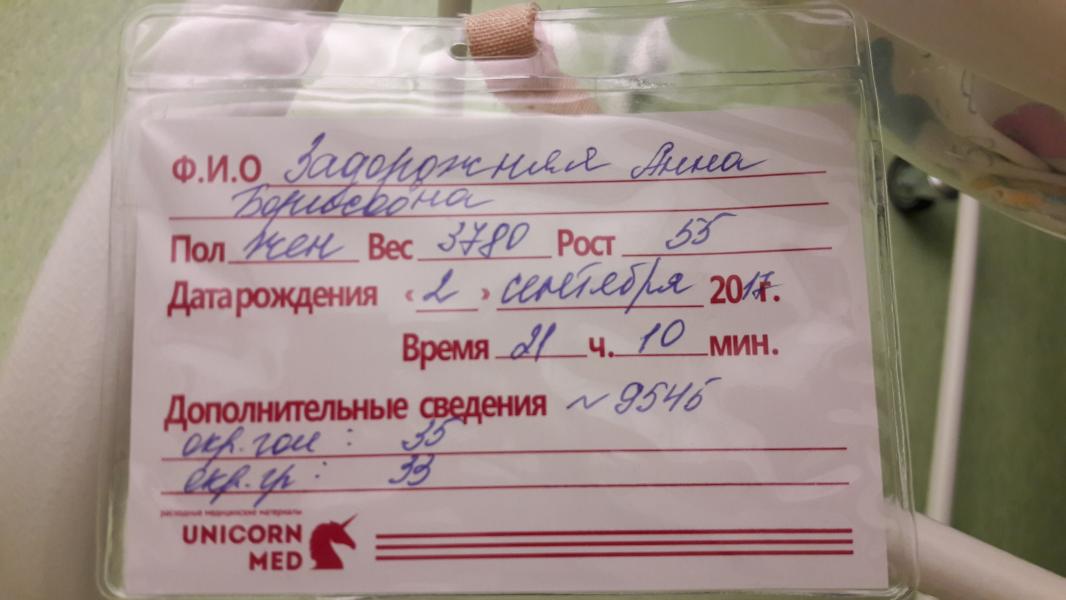 Ф.И.О Задорожняя Анна
Борисовна
Пол жен Вес 3780 Рост 55
Дата рождения «2» сентября 2017г.
Время 21 ч. 10 мин.
Дополнительные сведения ~ 9545
окр. гол : 35
окр. гр : 33
расходные медицинские материалы
UNICORN
MED